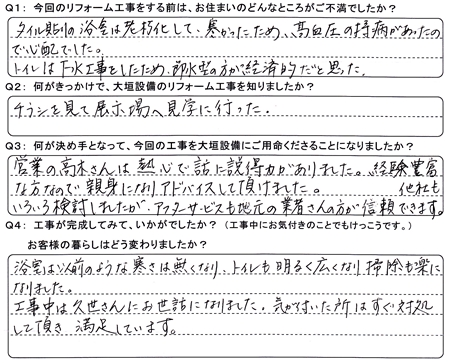 Q1: 今回のリフォーム工事をする前は、お住まいのどんなところがご不満でしたか？
タイル貼りの浴室は老朽化して、寒かったため、高血圧の持病があったの
で心配でした。
トイレは下水工事をしたため、節水型の方が経済的だと思った。
Q2: 何がきっかけで、大垣設備のリフォーム工事を知りましたか？
チラシを見て展示場へ見学に行った。
Q3: 何が決め手となって、今回の工事を大垣設備にご用命くださることになりましたか？
営業の高木さんは熱心で話に説得力がありました。経験豊富
な方なので親身になりアドバイスして頂けました。 他社も
いろいろ検討しましたが、アフターサービスも地元の業者さんの方が信頼できます。
Q4: 工事が完成してみて、いかがでしたか？（工事中にお気付きのことでもけっこうです。）
お客様の暮らしはどう変わりましたか？
浴室は以前のような寒さは無くなり、トイレも明るく広くなり掃除も楽に
なりました。
工事中は久世さんにお世話になりました。気が付いた所はすぐ対処
して頂き 満足しています。